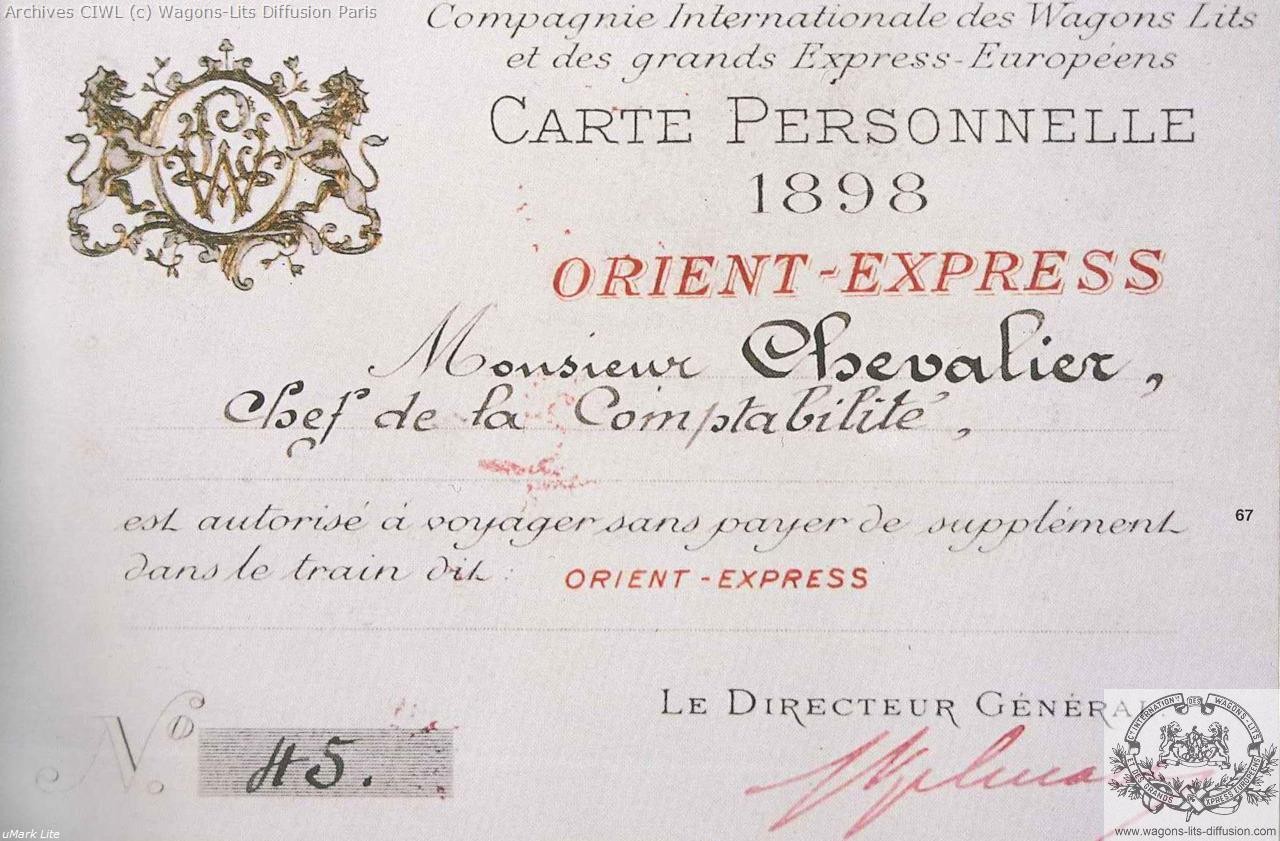 Archives CIWL (c) Wagons-Lits Diffusion Paris
Compagnie Internationale des Wagons Lits
et des grands Express-Européens
CARTE PERSONNELLE
1898
ORIENT-EXPRESS
Monsieur Chevalier,
Chef de la Comptabilité,
est autorisé à voyager sans payer de supplément
dans le train dit: ORIENT-EXPRESS
67
LE DIRECTEUR GÉNÉRAL
No. 45.
uMark Lite
www.wagons-lits-diffusion.com